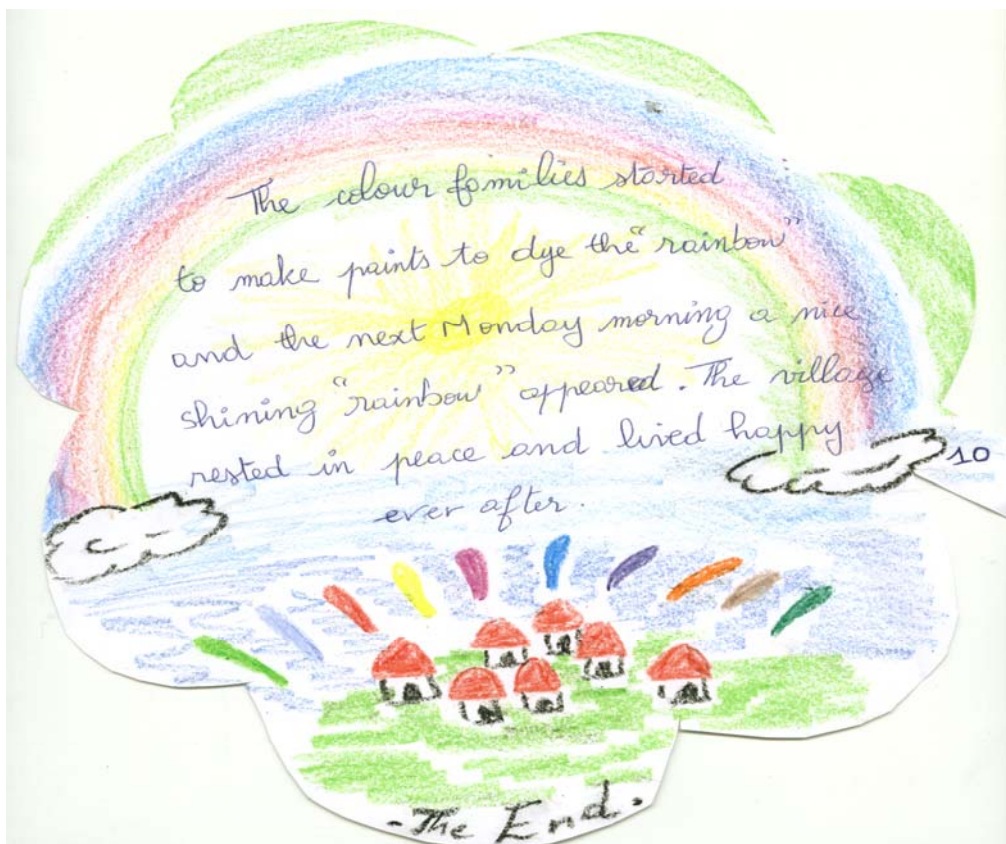 The colour families started
to make paints to dye the "rainbow"
and the next Monday morning a nice
shining "rainbow" appeared. The village
rested in peace and lived happy
ever after.
10
. The End.